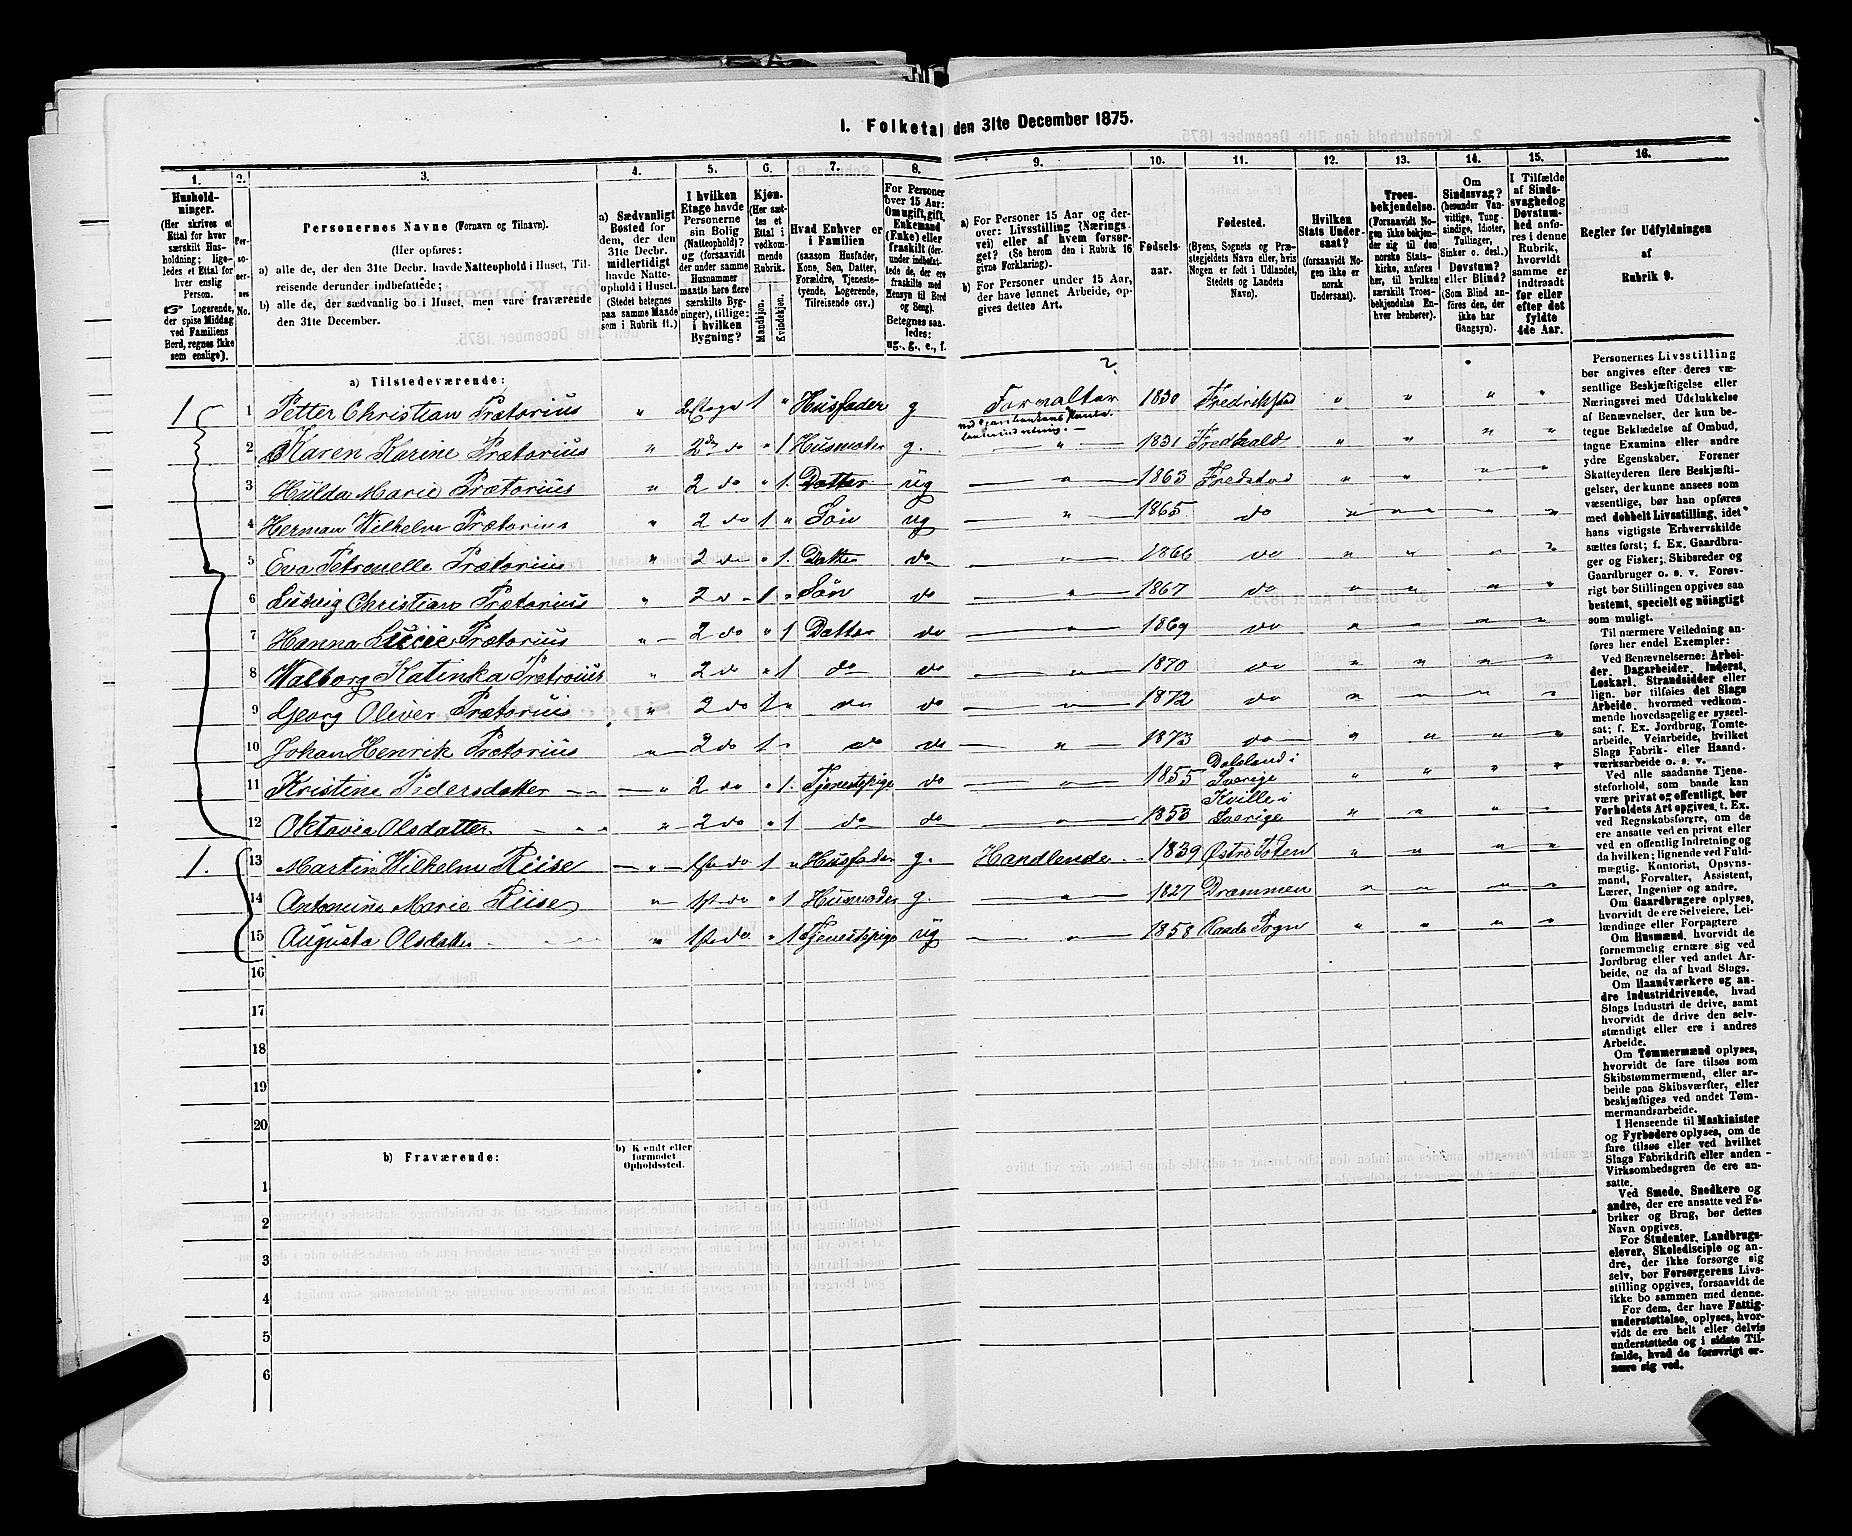 I. Folketal den 31te December 1875.
1. 2. 3. 4. 5. 6. 7. 8. 9. 10. 11. 12. 13. 14. 15. 16.
Husholdninger.
(Her skrives et
Ettal for hver
særskilt Husholdning; ligeledes
et Ettal for
hver enslig
Person.
Logerende,
der spise Middag
ved Familiens
Bord, regnes ikke
som enslige).
Personernes No.
Personernes Navne (Fornavn og Tilnavn).
(Her opføres:
a) alle de, der den 31te Decbr. havde Natteophold i Huset, Tilreisende
derunder indbefattede;
b) alle de, der sædvanlig bo i Huset, men vare fraværende
den 31te December.
a) Sædvanligt
Bosted for
dem, der den
31te Decbr.
midlertidigt
havde Natteophold
i Huset.
(Stedet betegnes
paa samme Maade
som i Rubrik 11.)
I hvilken
Etage havde
Personerne
sin Bolig
(Natteophold)?
og (forsaavidt
der under samme
Husnummer
maatte høre flere
særskilte Bygninger),
tillige:
i hvilken
Bygning?
Kjøn.
(Her sættes
et
Ettal i
vedkommende
Rubrik.
Mandkjøn.
Kvindekjøn.
Hvad Enhver er
i Familien
(saasom Husfader,
Kone, Søn, Datter,
Forældre, Tjenestetyende,
Logerende,
Tilreisende osv.)
For Personer
over 15 Aar:
Om ugift, gift,
Enkemand
(Enke) eller
fraskilt (derunder
indbefattede
de, der ere
fraskilte med
Hensyn til Bord
og Seng).
Betegnes saaledes:
ug., g., e., f.
a) For Personer 15 Aar og derover:
Livsstilling (Næringsvei)
eller af hvem forsørget?
(Se herom i Rubrik 16
givne Forklaring).
b) For Personer under 15 Aar,
der have lønnet Arbeide, opgives
dettes Art.
Fødselsaar.
Fødested.
(Byens, Sognets og Præstegjeldets
Navn eller, hvis
Nogen er født i Udlandet,
Stedets og Landets
Navn).
Hvilken
Stats Undersaat?
(forsaavidt Nogen
ikke er
norsk
Undersaat).
Troesbekjendelse.
(Forsaavidt Nogen
ikke bekjender
sig til den
norske Statskirke,
anføres
her, til hvilken
særskilt Troesbekjendelse
Enhver
henhører).
Om
Sindssvag?
(herunder Vanvittige,
Tungsindige,
Idioter,
Tullinger,
Sinker o. desl.)
Døvstum?
eller Blind?
(Som Blind anføres
den, der
ikke har
Gangsyn).
I Tilfælde
af Sindssvaghed
og
Døvstumhed
anføres i
denne
Rubrik,
hvorvidt
samme er
indtraadt
før eller
efter det
fyldte
4de Aar.
Regler for Udfyldningen
af
Rubrik 9.
a) Tilstedeværende:
1 1 Petter Christian Prætorius " 2 Etage 1 " Husfader g Forvalter 1830 Fredrikstad " " " "
2 Karen Karine Prætorius " 2 do do " 1 Husmoder g. " 1831 Fredhald " " " "
3 Hulda Marie Prætorius " 2 do " 1 Datter ug " 1863 Fredstad " " " "
4 Herman Wilhelm Prætorius " 2 do 1 " Søn ug " 1865 do " " " "
5 Eva Petronelle Prætorius " 2 do " 1 Datter do " 1866 do " " " "
6 Ludvig Christian Prætorius " 2 do 1 " Søn do " 1867 do " " " "
7 Hanna Prætorius " 2 do " 1 Datter do " 1869 do " " " "
8 Walborg Katinka Prætorius " 2 do " 1 do do " 1870 do " " " "
9 Georg Oliver Prætorius " 2 do 1 " do do " 1872 do " " " "
10 Johan Henrik Prætorius " 2 do 1 " do do " 1873 do " " " "
11 Kristine Pedersdatter " 2 do " 1 Tjenestpige do " 1855 Dalsland i Sverige " " " "
12 Oktavia Olsdatter " 2 do " 1 do do " 1853 Kville i Sverige " " " "
1. 13 Martin Wilhelm Riise " 1ste do 1 " Husfader g. Handlende 1839 Østre Toten " " " "
14 Antonine Marie Riise " 1ste do " 1 Husmoder g. " 1827 Drammen " " " "
15 Augusta Olsdatter " 1ste do " 1 Tjenestepige ug " 1858 Raade Sogn " " " "
16
17
18
19
20
b) Fraværende:
b) Kjendt eller
formodet
Opholdssted.
1
2
3
4
5
6
Personernes Livsstilling
bør angives efter deres væsentlige
Beskjæftigelse eller
Næringsvei med Udelukkelse
af Benævnelser, der kun betegne
Beklædelse af Ombud,
tagne Examina eller andre
ydre Egenskaber. Forener
Skatteyderen flere Beskjæftigelser,
der kunne ansees som
væsentlige, bør han opføres
med dobbelt Livsstilling, idet
hans vigtigste Erhvervskilde
sættes først; f. Ex. Gaardbruger
og Fisker; Skibsreder og
Gaardbruger o. s. v. Forøvrigt
bør Stillingen opgives saa
bestemt, specielt og nöiagtigt
som muligt.
Til nærmere Veiledning anføres
her endel Exempler:
Ved Benævnelserne: Arbeider,
Dagarbeider, Inderst,
Løskarl, Strandsidder eller
lign. bør tilføies det Slags
Arbeide, hvormed vedkommende
hovedsagelig er sysselsat;
f. Ex. Jordbrug, Tomtearbeide,
Veiarbeide, hvilket
Slags Fabrik- eller Haandværksarbeide
o. s. v.
Ved alle saadanne Tjenesteforhold,
som baade kan
være privat og offentligt, bør
Forholdets Art opgives, t. Ex.
ved Regnskabsførere, om de
ere ansatte ved en privat eller
ved en offentlig Indretning og
da hvilken; lignende ved Fuldmægtig,
Kontorist, Opsynsmand,
Forvalter, Assistent,
Lærer, Ingeniør og andre.
Om Gaardbrugere oplyses,
hvorvidt de ere Selveiere, Leilændinge
eller Forpagtere
Om Husmænd, hvorvidt de
fornemmelig ernære sig ved
Jordbrug eller ved andet Arbeide,
og da af hvad Slags.
Om Haandværkere og andre
Industridrivende, hvad
Slags Industri de drive, samt
hvorvidt de drive den selvstændigt
eller ere i andres
Arbeide.
Om Tømmermænd oplyses,
hvorvidt de fare tilsøs som
Skibstømmermænd, eller arbeide
paa Skibsværfter, eller
beskjæftiges ved andet Tømmermandsarbeide.
I Henseende til Maskinister
og Fyrbødere oplyses, om de
fare tilsøs eller ved hvilket
Slags Fabrikdrift eller anden
Virksomhedsgren de ere ansatte.
Ved Smede, Snedkere og
andre, der ere ansatte ved Fabriker
og Brug, bør dettes
Navn opgives.
For Studenter, Landbrugselever,
Skoledisciple og andre,
der ikke forsørge sig
selv, bør Forsørgerens Livsstilling
opgives, forsaavidt de
ikke bo sammen med denne.
For dem, der have Fattigunderstøttelse,
oplyses, hvorvidt
de ere helt eller delvis
understøttede og i sidste Tilfælde,
hvad de forøvrigt ernære
sig ved.